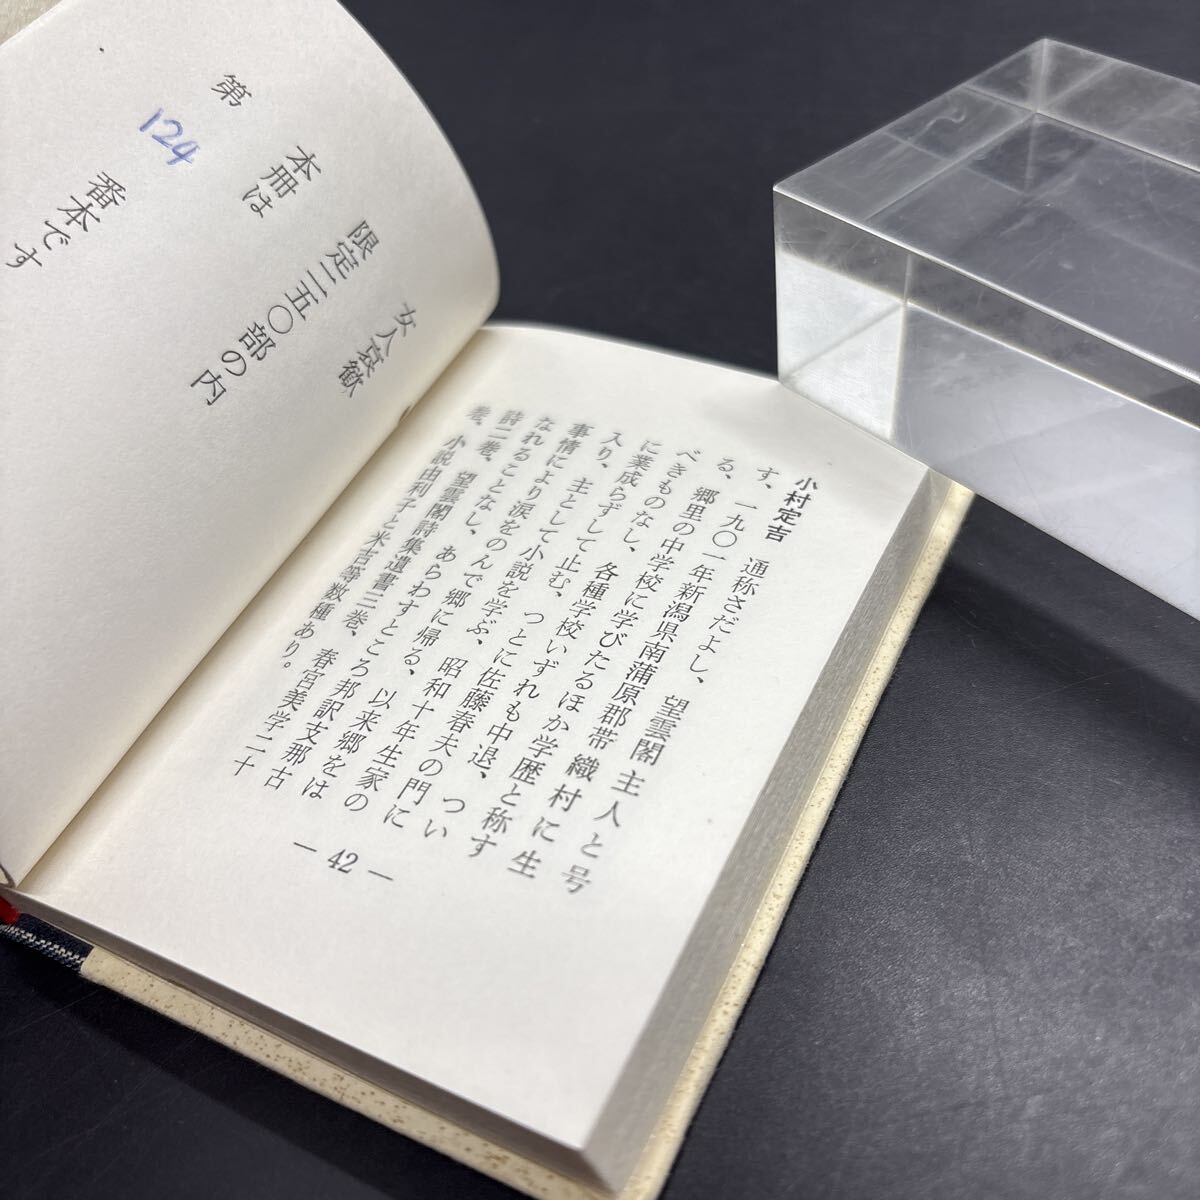 小村定吉　通称さだよし、望雲閣主人と号
す、一九〇一年新潟県南蒲原郡帯織村に生
る、郷里の中学校に学びたるほか学歴と称す
べきものなし、各種学校いずれも中退、つい
に業成らずして止む、つとに佐藤春夫の門に
入り、主として小説を学ぶ、昭和十年生家の
事情により涙をのんで郷に帰る、以来郷をは
なれることなし、あらわすところ邦訳支那古
詩二巻、望雲閣詩集遺書三巻、春宮美学二十
巻、小説由利子と米吉等数種あり。
— 42 —
女人哀歓
限定二五〇部の内
本冊は
第 124 番本です